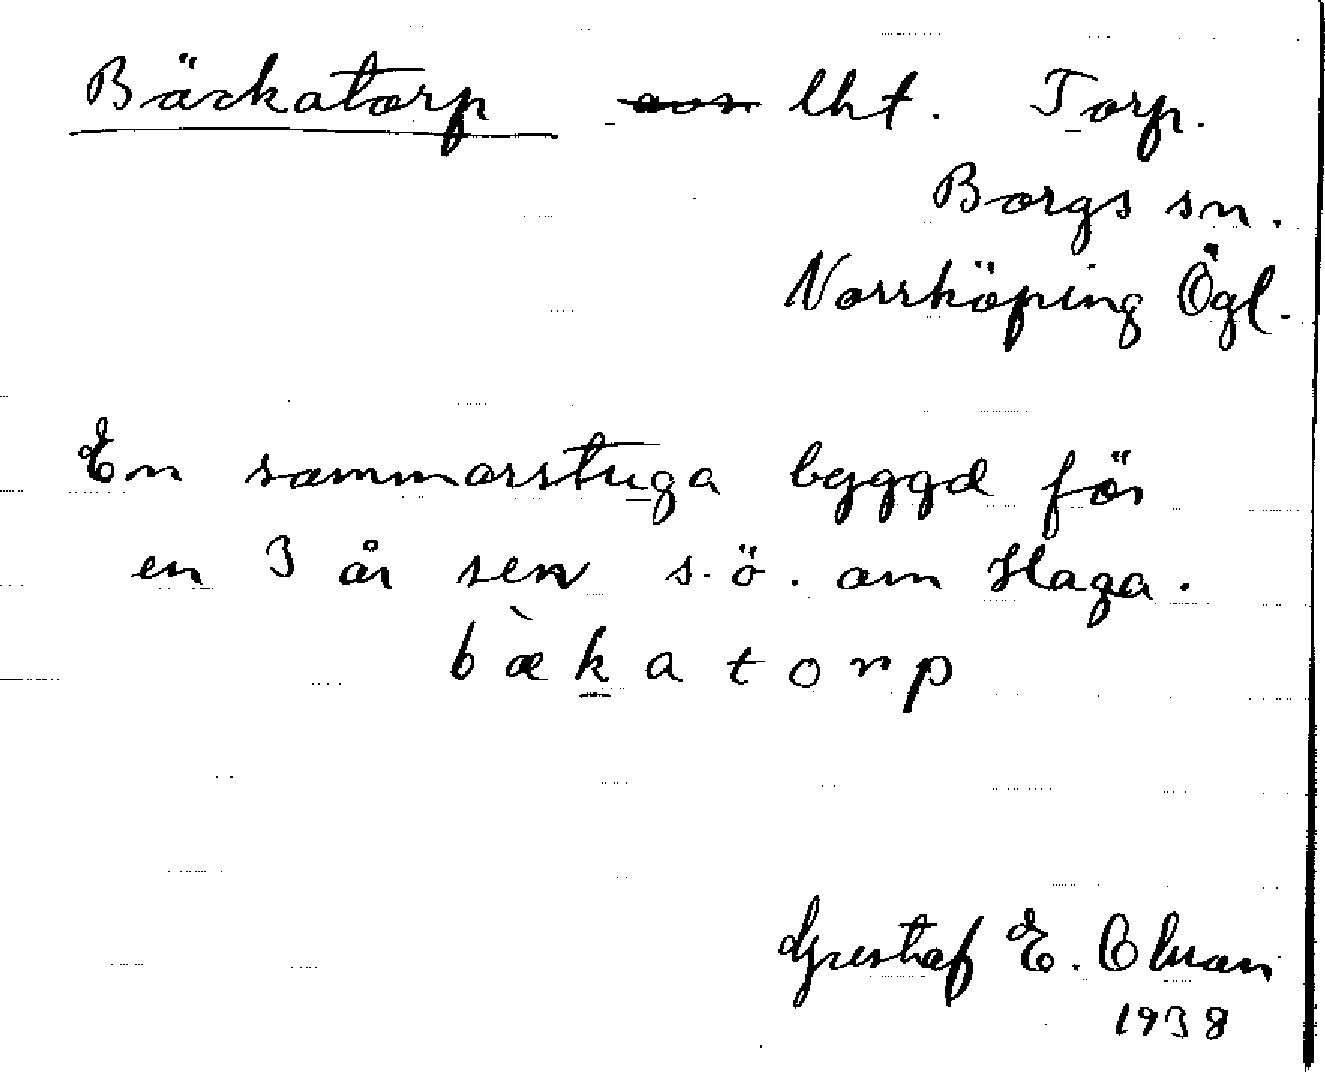 Bäckatorp lht. Torp.
Borgs sn.
Norrköping Ögl.
En sommarstuga byggd för
en 3 år sen s.ö. om Haga.
bæ̀k̲atorp
Gustaf E. Olman
1938